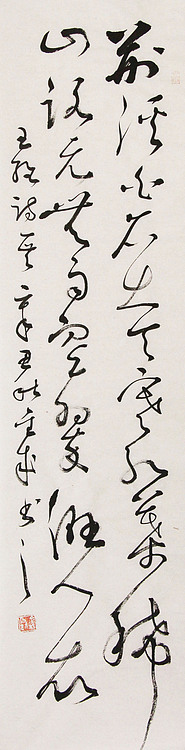 荊溪白石出天寒紅葉稀
山路元無雨空翠濕人衣
王維詩 辛丑秋 書